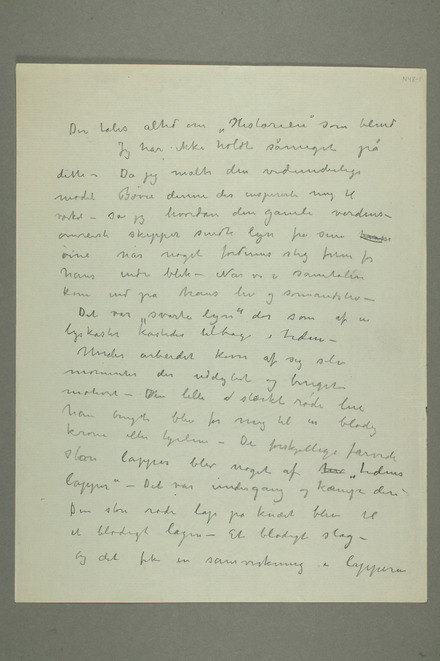 Der tales altid om „Historien" som blind
Jeg har ikke holdt så meget på
dette – Da jeg malte den vidunderlige
model Børre denne der inspirerte meg til
– så jeg hvordan den gamle verdens-
skipper sendte lyn fra sine
øine når noget fortidens steg frem for
hans indre blik – Når vi i samtalen
kom ind på hans liv og
Det var „svarte lyn" der som af en
lyskaster kastedes tilbage i tiden –
Under arbeidet kom af sig selv
momenter der uddybet og
motivet – Den lille stærkt røde lue
han brugte blev for mig til en blodig
krone eller – De forskjellige farvede
lapper blev noget af „tidens
lapper" – Det var undergang og kampe deri
Den store røde lap på knæet blev til
et blodigt – Et blodigt slag –
og det fik en samvirkning i lapperne